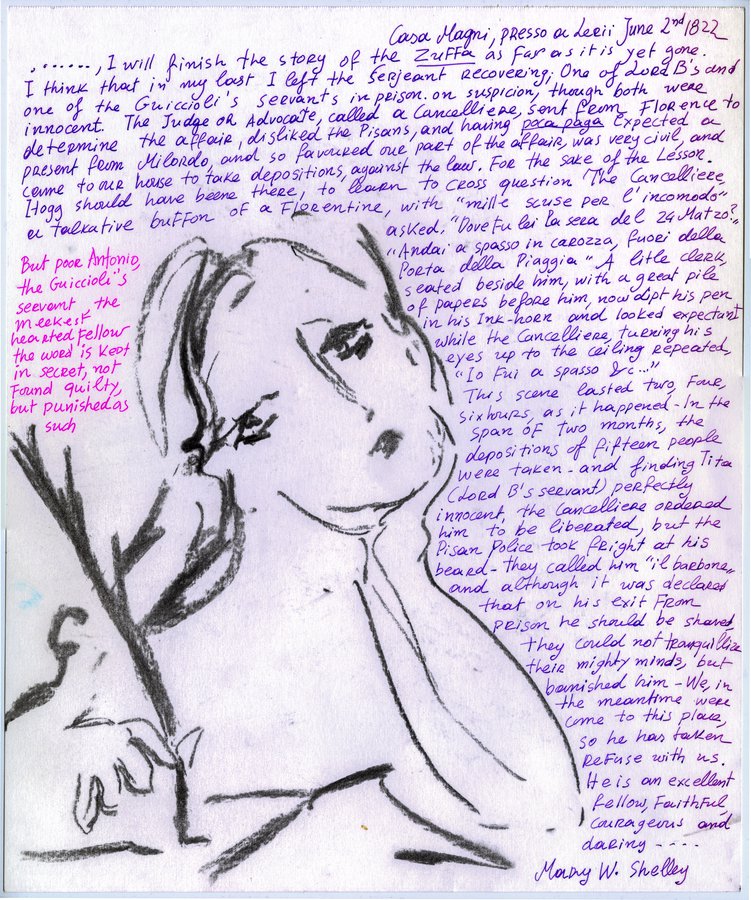 Casa Magni, presso a Lerii June 2nd 1822
......, I will finish the story of the Zuffa as far as it is yet gone.
I think that in my last I left the Serjeant recovering; One of Lord B's and
one of the Guiccioli's servants in prison on suspicion, though both were
innocent. The Judge or Advocate, called a Cancelliere, sent from Florence to
determine the affair, disliked the Pisans, and having poca paga expected a
present from Milordo, and so favoured our part of the affair, was very civil, and
came to our house to take depositions, against the law. For the sake of the Lesson.
Hogg should have beene there, to learn to cross question The Cancelliere,
a talkative buffon of a Florentine, with "mille scuse per l'incomodo"
asked. "Dove fu lei la sera del 24 Matzo?"
"Andai a spasso in carozza, fuori della
Porta della Piaggia" A litle clerk,
seated beside him, with a great pile
of papers before him, now dipt his pen
in his Ink-horn and looked expectant
while the Cancelliere, turning his
eyes up to the ceiling repeated,
"Io Fui a spasso &c..."
This scene lasted two, Four,
six hours, as it happened - In the
span of two months, the
depositions of fifteen people
were taken - and finding Tita
(Lord B's servant) perfectly
innocent, the Cancelliere ordered
him to be liberated, but the
Pisan Police took fright at his
beard - they called him "il barbone"
and although it was declared
that on his exit From
prison he should be shaved,
they could not tranquillize
their mighty minds, but
banished him - We, in
the meantime were
come to this place,
so he has taken
Refuse with us.
He is an excellent
fellow, Faithful,
courageous and
daring ----
Mary W. Shelley
But poor Antonio,
the Guiccioli"s
servant, the
meekest
hearted Fellow
the word is kept
in secret, not
Found guilty,
but punished as
such